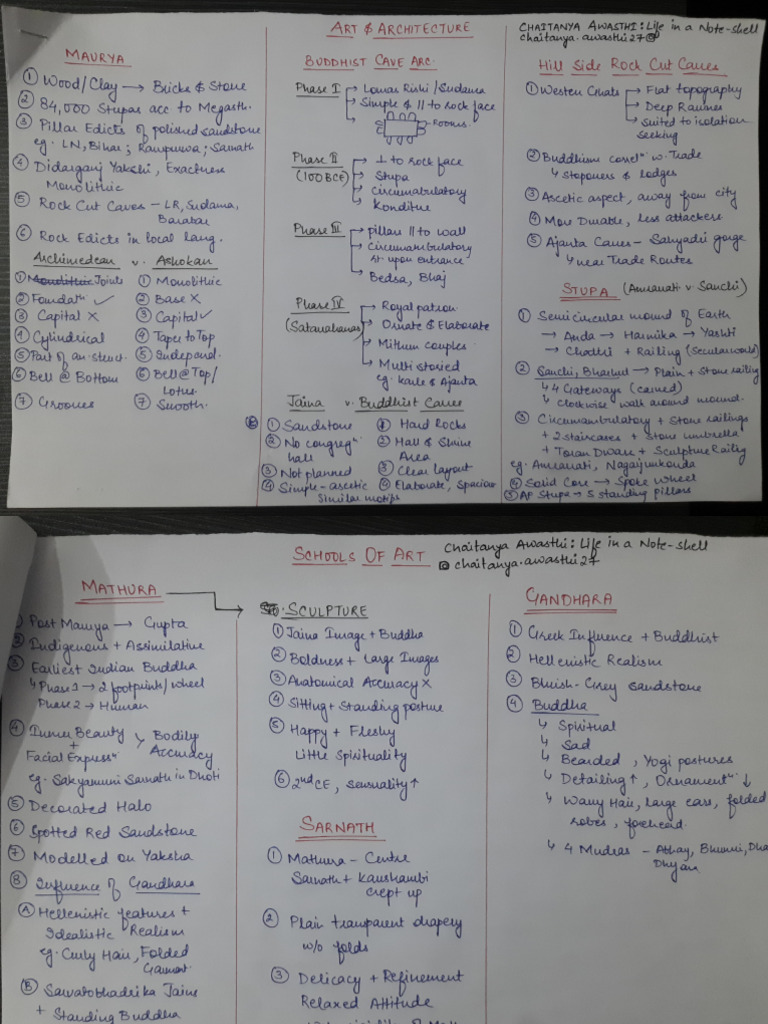 ART & ARCHITECTURE
CHAITANYA AWASTHI: Life in a Note-shell
chaitanya.awasthi27@
MAURYA
① Wood/Clay → Bricks & Stone
② 84,000 Stupas acc to Megasth.
③ Pillar Edicts of polished sandstone
eg. LN, Bihar; Rampurwa; Sarnath
④ Didarganj Yakshi, Exactness
Monolithic
⑤ Rock Cut Caves – LR, Sudama,
Barabar
⑥ Rock Edicts in local lang.
Archimedean v. Ashokan
① Monolithic Joints ① Monolithic
② Foundatⁿ ✓ ② Base X
③ Capital X ③ Capital ✓
④ Cylindrical ④ Taper to Top
⑤ Part of an struct. ⑤ Independ.
⑥ Bell @ Bottom ⑥ Bell @ Top/
Lotus
⑦ Grooves ⑦ Smooth.
BUDDHIST CAVE ARC.
Phase I → Lomas Rishi/Sudama
→ Simple & || to rock face
→ Rooms.
Phase II → ⊥ to rock face
(100 BCE) → Stupa
→ Circumabulatory
→ Konditne
Phase III → pillars || to wall
→ Circumambulatory
st upon entrance
→ Bedsa, Bhaj
Phase IV → Royal patron
(Satavahanas) → Ornate & Elaborate
→ Mithun couples
→ Multi storied
eg. Karle & Ajanta
Jaina v. Buddhist Caves
① Sandstone ① Hard Rocks
② No congregⁿ ② Hall & Shrine
hall Area
③ Not planned ③ Clear layout
④ Simple-ascetic ④ Elaborate, Spacious
Similar motifs
HILL SIDE ROCK CUT CAVES
① Western Ghats → Flat topography
→ Deep Ravines
→ suited to isolation
seeking
② Buddhism connetⁿ w. Trade
↳ Stopovers & lodges
③ Ascetic aspect, away from city
④ More Durable, less attackers
⑤ Ajanta Caves – Sahyadri gorge
↳ near Trade Routes
STUPA (Amravati v Sanchi)
① Semicircular mound of Earth
→ Anda → Harmika → Yashti
→ Chattri + Railing (Secular world)
② Sanchi, Bharhut → Plain + Stone railing
↳ 4 Gateways (carved)
↳ Clockwise walk around mound.
③ Circumambulatory + Stone railings
+ 2 staircases + Stone umbrella
+ Toran Dwar + Sculpture Railing
eg. Amravati, Nagarjunkonda
④ Solid Core → Spoke Wheel
⑤ AP Stupa → 5 standing pillars
SCHOOLS OF ART
Chaitanya Awasthi: Life in a Note-shell
@ chaitanya.awasthi27
MATHURA
① Post Maurya → Gupta
② Indigenous + Assimilative
③ Earliest Indian Buddha
↳ Phase 1 → 2 footprints/wheel
Phase 2 → Human
④ Inner Beauty Bodily
+ Accuracy
Facial Expressⁿ
eg. Sakyamuni Sarnath in Dhoti
⑤ Decorated Halo
⑥ Spotted Red Sandstone
⑦ Modelled on Yaksha
⑧ Influence of Gandhara
Ⓐ Hellenistic features +
Idealistic Realism
eg. Curly Hair, Folded
Garment
Ⓑ Sarvatobhadrika Jains
+ Standing Buddha
SCULPTURE
① Jaina Image + Buddha
② Boldness + Large Images
③ Anatomical Accuracy X
④ Sitting + Standing posture
⑤ Happy + Fleshy
Little Spirituality
⑥ 2nd CE, Sensuality ↑
SARNATH
① Mathura – Centre
Sarnath + Kaushambi
crept up
② Plain transparent drapery
w/o folds
③ Delicacy + Refinement
Relaxed Attitude
GANDHARA
① Greek Influence + Buddhist
② Hellenistic Realism
③ Bluish-Grey Sandstone
④ Buddha
↳ Spiritual
↳ Sad
↳ Bearded, Yogi postures
↳ Detailing ↑, Ornamentⁿ ↓
↳ Wavy Hair, large ears, folded
robes, forehead
↳ 4 Mudras – Abhay, Bhumi, Dha
Dhyan